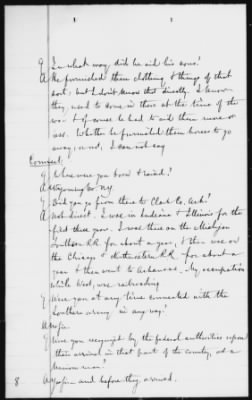 Q In what way did he aid his sons?
A He furnished them clothing & things of that
sort; but I don't know this directly. I know
they used to come in there at the time of the
war & of course he had to aid them more or
less. Whether he furnished them horses to go
away, or not, I can not say
Q Where were you born & raised?
A Wyoming Co. N.Y.
Q Did you go from there to Clark Co. Ark?
A Not direct. I was in Indiana & Illinois for the
first three years. I was there on the Michigan
Southern R.R. for about a year, & then was on
the Chicago & Northwestern R.R. for about a
year & then went to Arkansas. My occupation
while West, was railroading
Q Were you at any time connected with the
Southern army in any way.
A No sir.
Q Were you recognized by the federal authorities upon
their arrival in that part of the country, as a
Union man?
A Yes sir - and before they arrived.
8